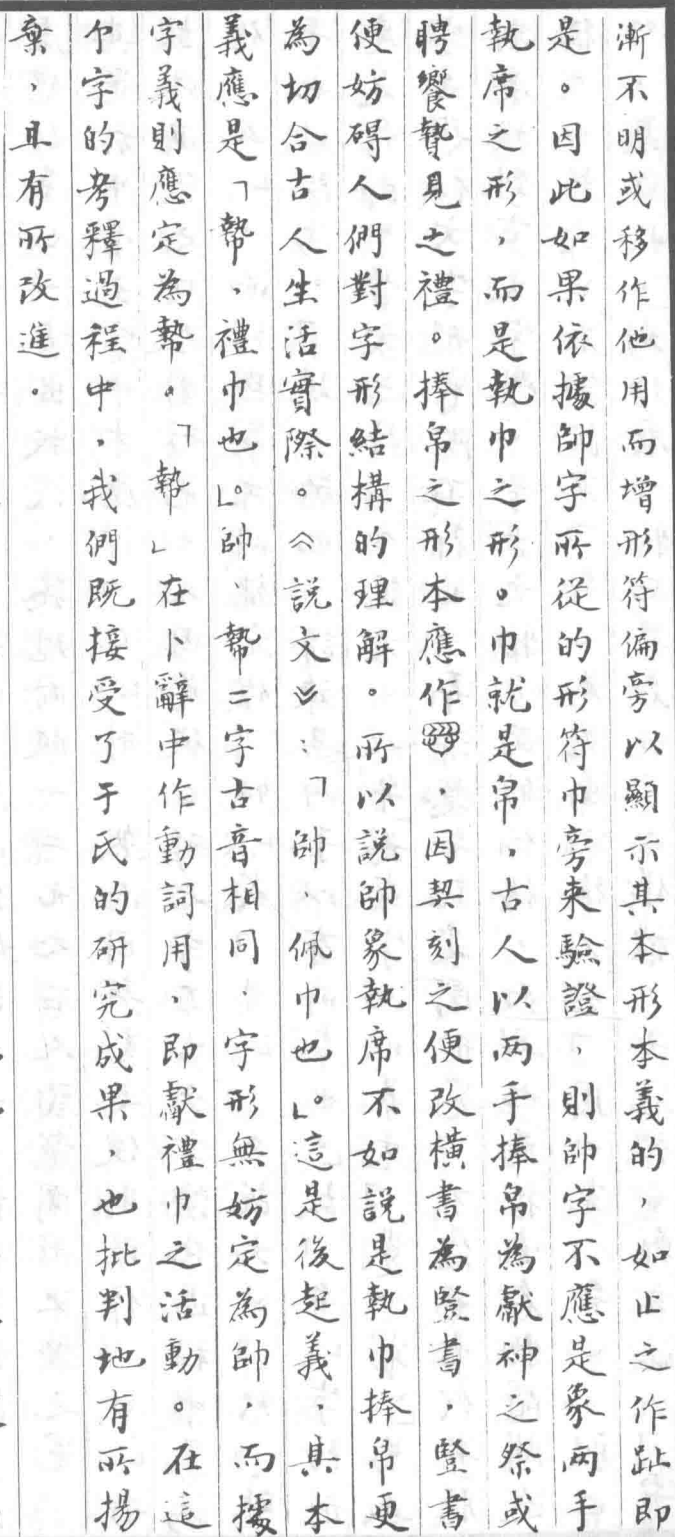 漸不明或移作他用而增形符偏旁以顯示其本形本義的，如止之作趾即
是。因此如果依據帥字所從的形符巾旁来驗證，則帥字不應是象两手
執席之形，而是執巾之形。巾就是帛，古人以两手捧帛為獻神之祭或
聘饗贄見之禮。捧帛之形本應作，因契刻之便改橫書為竪書，豎書
便妨碍人們對字形結構的理解。所以説帥象執席不如説是執巾捧帛更
為切合古人生活實際。《説文》：「帥，佩巾也」。這是後起義，其本
義應是「幣，禮巾也」。帥、幣二字古音相同，字形無妨定為帥，而據
字義則應定為幣。「幣」在卜辭中作動詞用，即獻禮巾之活動。在這
个字的考釋過程中，我們既接受了于氏的研究成果，也批判地有所揚
棄，且有所改進．